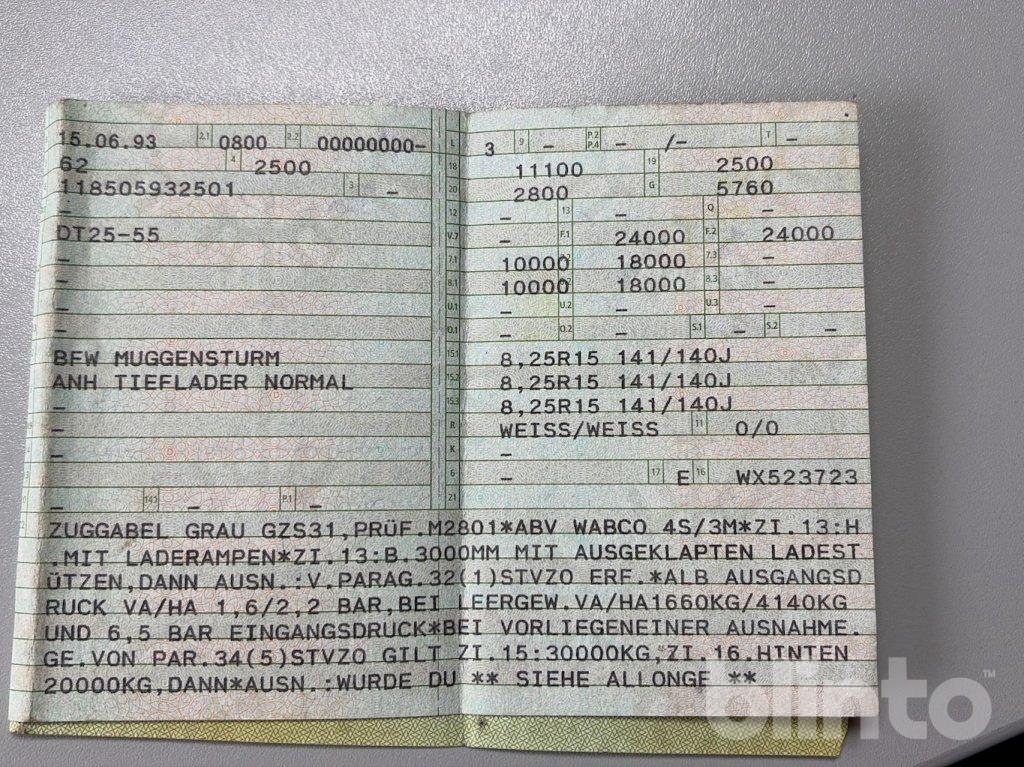 15.06.93 2.1 0800 2.2 00000000-
62 4 2500
118505932501 3 -
-
DT25-55
-
-
-
-
BFW MUGGENSTURM
ANH TIEFLADER NORMAL
-
-
-
- 14.1 - P.1 -
L 3 9 - P.2 P.4 - /- T -
18 11100 19 2500
20 2800 G 5760
12 - 13 - Q -
V.7 - F.1 24000 F.2 24000
7.1 10000 7.2 18000 7.3 -
8.1 10000 8.2 18000 8.3 -
U.1 - U.2 - U.3 -
O.1 - O.2 - S.1 - S.2 -
15.1 8,25R15 141/140J
15.2 8,25R15 141/140J
15.3 8,25R15 141/140J
R WEISS/WEISS 11 0/0
K -
6 - 17 E 16 WX523723
21
ZUGGABEL GRAU GZS31,PRÜF.M2801*ABV WABCO 4S/3M*ZI.13:H
.MIT LADERAMPEN*ZI.13:B.3000MM MIT AUSGEKLAPTEN LADEST
ÜTZEN,DANN AUSN.:V.PARAG.32(1)STVZO ERF.*ALB AUSGANGSD
RUCK VA/HA 1,6/2,2 BAR,BEI LEERGEW.VA/HA1660KG/4140KG
UND 6,5 BAR EINGANGSDRUCK*BEI VORLIEGENEINER AUSNAHME.
GE.VON PAR.34(5)STVZO GILT ZI.15:30000KG,ZI.16.HINTEN
20000KG,DANN*AUSN.:WURDE DU ** SIEHE ALLONGE **
blinto™